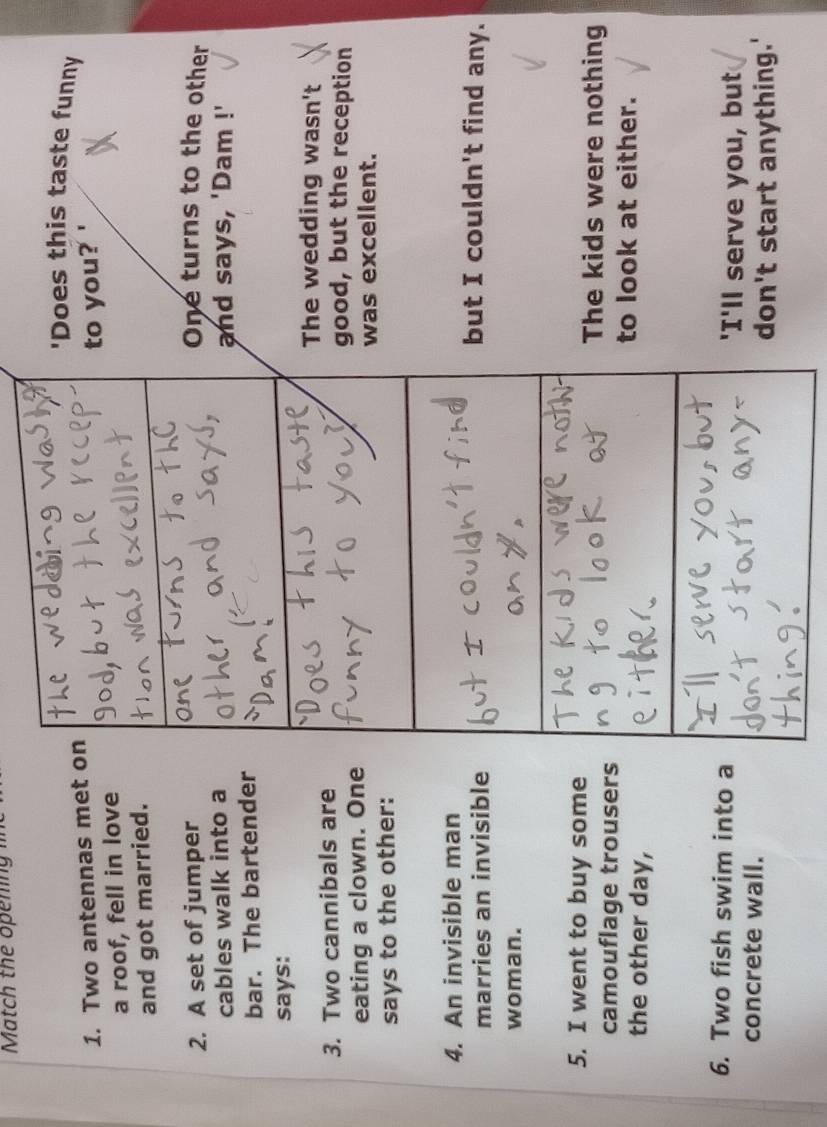 Match the opening
1. Two antennas met on
a roof, fell in love
and got married.
the wedding wasn't
god, but the recep-
tion was excellent
'Does this taste funny
to you? '
2. A set of jumper
cables walk into a
bar. The bartender
says:
one turns to the
other and says,
"Dam!"
One turns to the other
and says, 'Dam !'
3. Two cannibals are
eating a clown. One
says to the other:
"Does this taste
funny to you?"
The wedding wasn't
good, but the reception
was excellent.
4. An invisible man
marries an invisible
woman.
but I couldn't find
any.
but I couldn't find any.
5. I went to buy some
camouflage trousers
the other day,
The kids were nothi-
ng to look at
either.
The kids were nothing
to look at either.
6. Two fish swim into a
concrete wall.
I'll serve you, but
don't start any-
thing.'
'I'll serve you, but
don't start anything.'